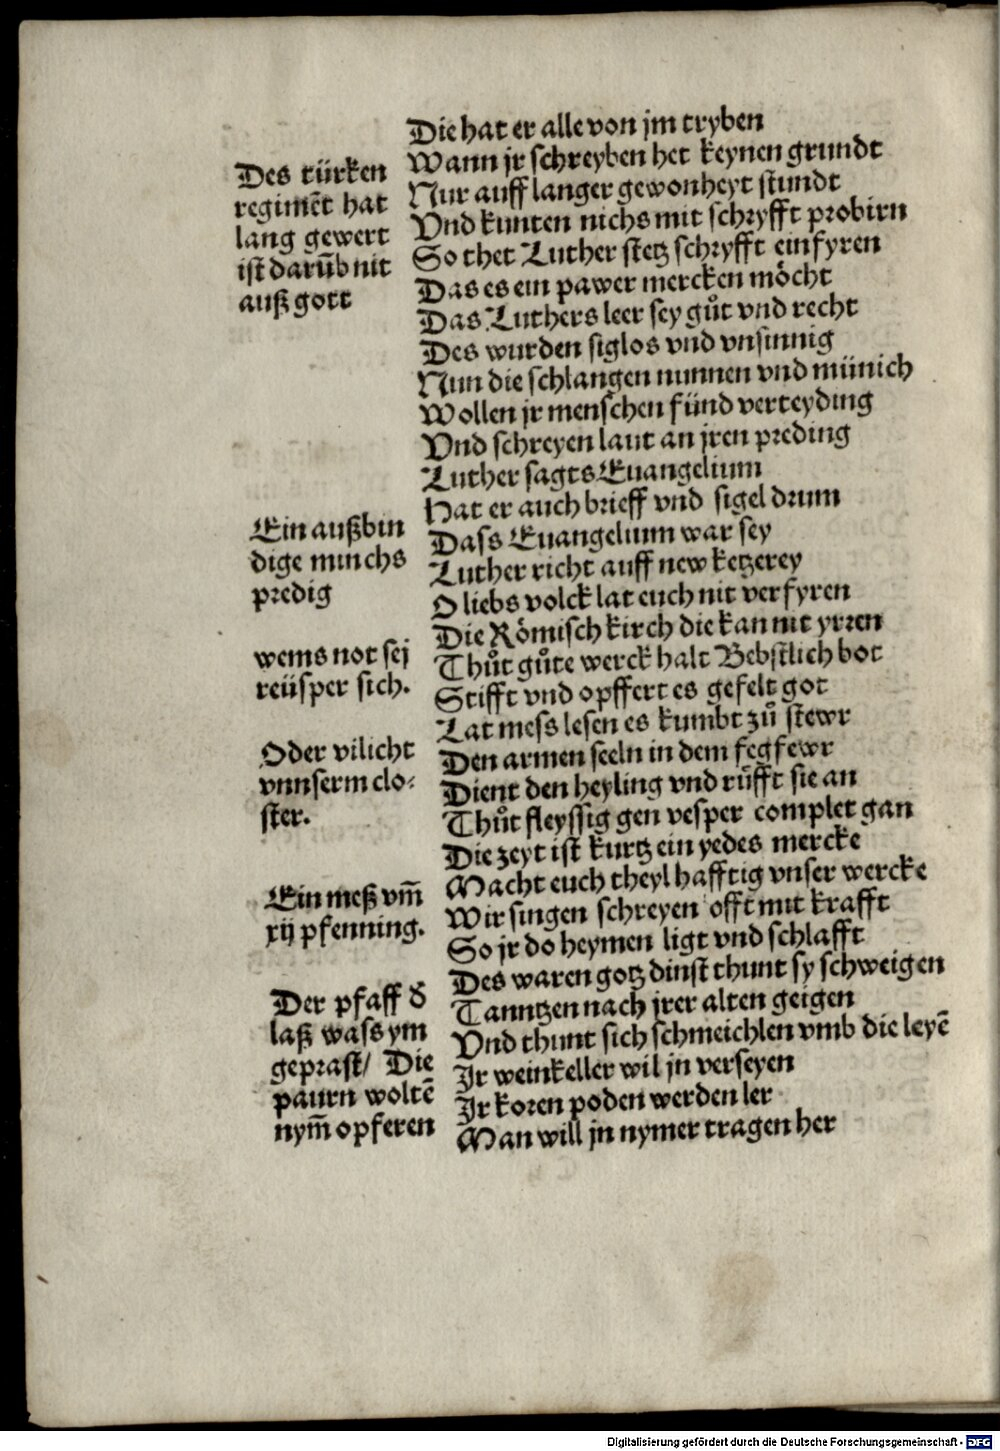 Die hat er alle von jm tryben
Wann jr schreyben het keynen grundt
Nur auff langer gewonheyt stundt
Vnd kunten nichs mit schryfft probirn
So thet Luther stetz schryfft einfyren
Das es ein pawer mercken möcht
Das Luthers leer sey gůt vnd recht
Des wurden siglos vnd vnsinnig
Nun die schlangen nunnen vnd münich
Wollen jr menschen fünd verteyding
Vnd schreyen laut an jren preding
Luther sagts Euangelium
Hat er auch brieff vnd sigel drum
Dass Euangelium war sey
Luther richt auff new ketzerey
O liebs volck lat euch nit verfyren
Die Römisch kirch die kan nit yrren
Thůt gůte werck halt Bebstlich bot
Stifft vnd opffert es gefelt got
Lat mess lesen es kumbt zů stewr
Den armen seeln in dem fegfewr
Dient den heyling vnd růfft sie an
Thůt fleyssig gen vesper complet gan
Die zeyt ist kurtz ein yedes mercke
Macht euch theylhafftig vnser wercke
Wir singen schreyen offt mit krafft
So jr do heymen ligt vnd schlafft
Des waren gotz dinst thunt sy schweigen
Tanntzen nach jrer alten geigen
Vnd thunt sich schmeichlen vmb die leyē
Jr weinkeller wil jn verseyen
Jr koren poden werden ler
Man will jn nymer tragen her
Des türken
regimēt hat
lang gewert
ist darūb nit
auß gott
Ein außbin
dige munchs
predig
wems not sej
reüsper sich.
Oder vilicht
vnnserm clo⸗
ster.
Ein meß vm̄
xij pfenning.
Der pfaff đ
laß wass ym
geprast/ Die
paurn woltē
nym̄ opferen
Digitalisierung gefördert durch die Deutsche Forschungsgemeinschaft - DFG